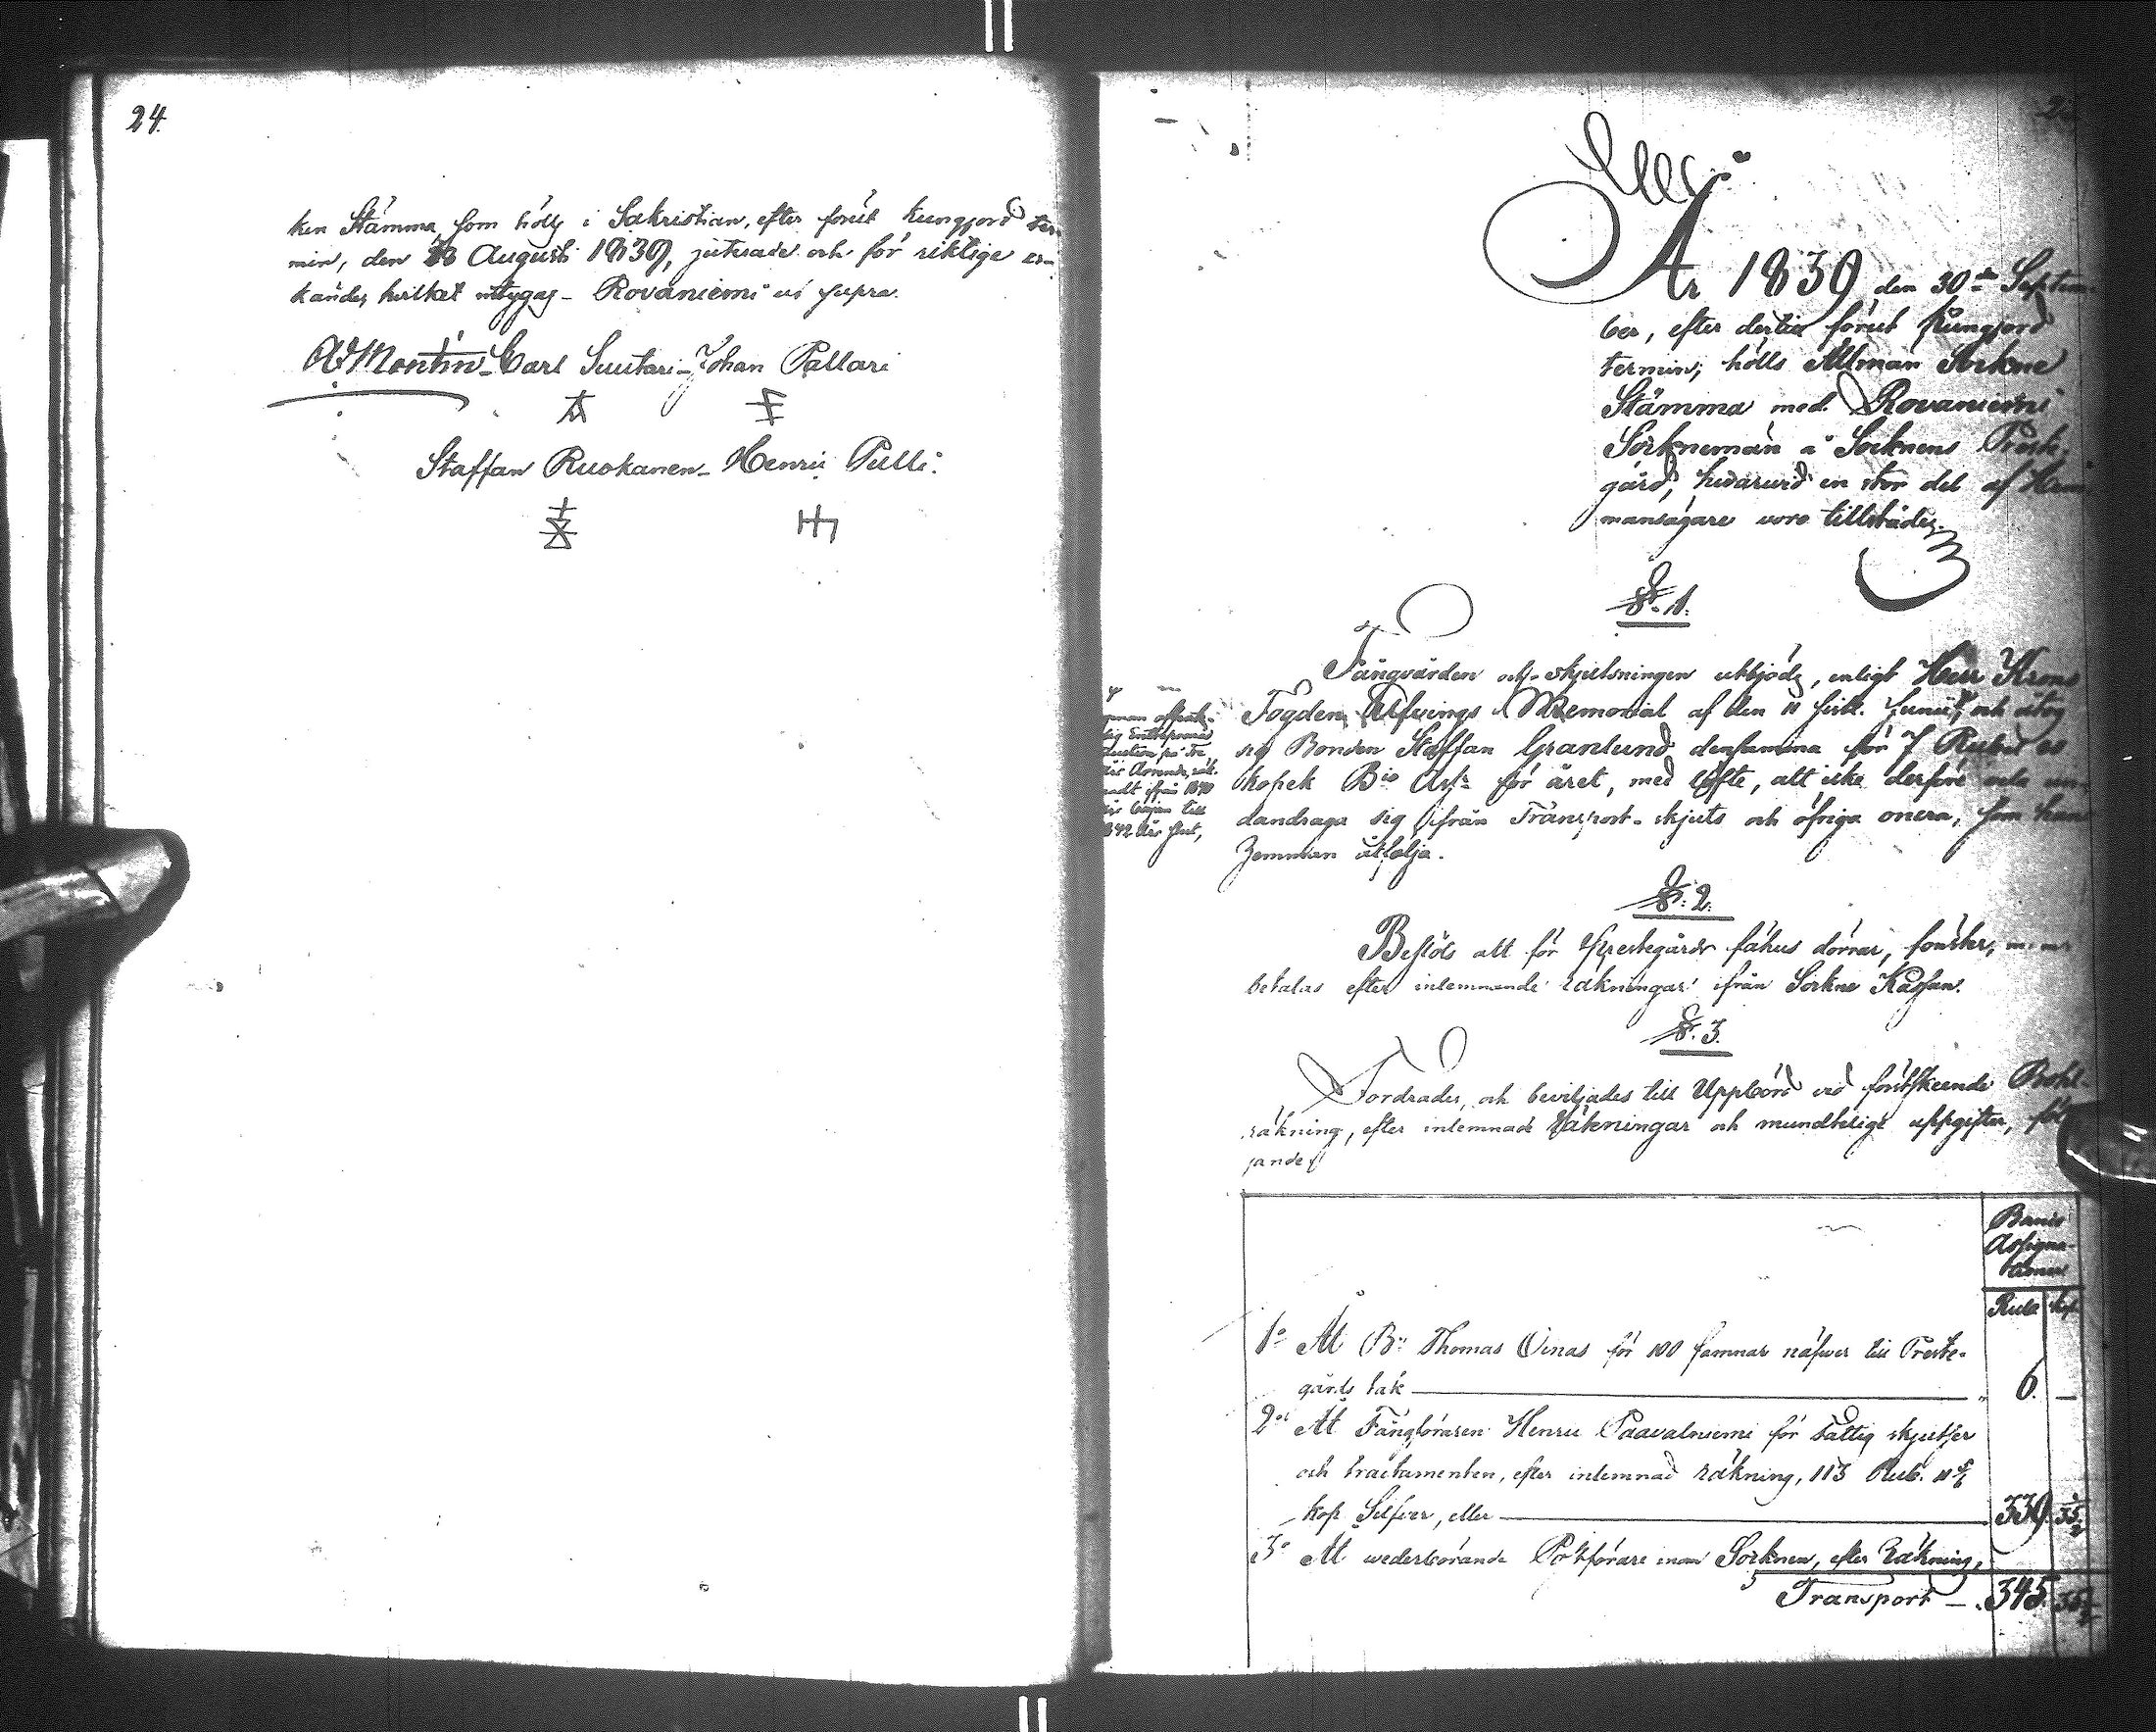 24.
ken Stämma, som hölls i Sakristian, efter förut kungjord ter-
min, den 18 Augusti 1839, justerade och för riktige er-
kändes, hvilket intygas - Rovaniemi ut supra.
A Montin - Carl Suutari - Johan Pallari
Staffan Ruokanen - Henric Pulli.
År 1839 den 30de Septem-
ber, efter dertill förut kungjord
termin, hölls Allmän Sockne
Stämma med Rovaniemi
Socknemän å Socknens Prest-
gård, hvarvid en stor del af Hem-
mansägare voro tillstädes.
§. 1.
Fångvården och -skjutsningen utbjöds, enligt Herr Krono
Fogden Memorial af den 11 sistl. Junii, och åtog
sig Bonden Staffan Granlund densamma för 7 Rubel
kopek Bco Ass. för året, med löfte, att icke derföre un-
dandraga sig ifrån Transport-skjuts och öfriga onera, som hans
hemman åtfölja.
ifrån 1840
års början till
1842 års slut,
§. 2.
Beslöts att för prestegårds fähus dörrar, fönster, m. m.
betalas efter inlemnande räkningar ifrån Sockne Kassan.
§. 3.
Fordrades, och beviljades till Uppbörd vid förstskeende
räkning, efter inlemnade Räkningar och mundtelige uppgifter, föl-
jande
Banco
Assigna-
tioner
Rub. kop.
1o At Bn Thomas Oinas för 100 famnar näfver till Preste-
gårds tak 6. —
2o At Fångföraren Henric Paavalniemi för skjutser
och tractamenten, efter inlemnad räkning, 113 Rub.
kop Silfver, eller 339. 35 1/2
3o At wederbörande Postförare inom Socknen, efter Räkning,
Transport — 345. 35 1/2